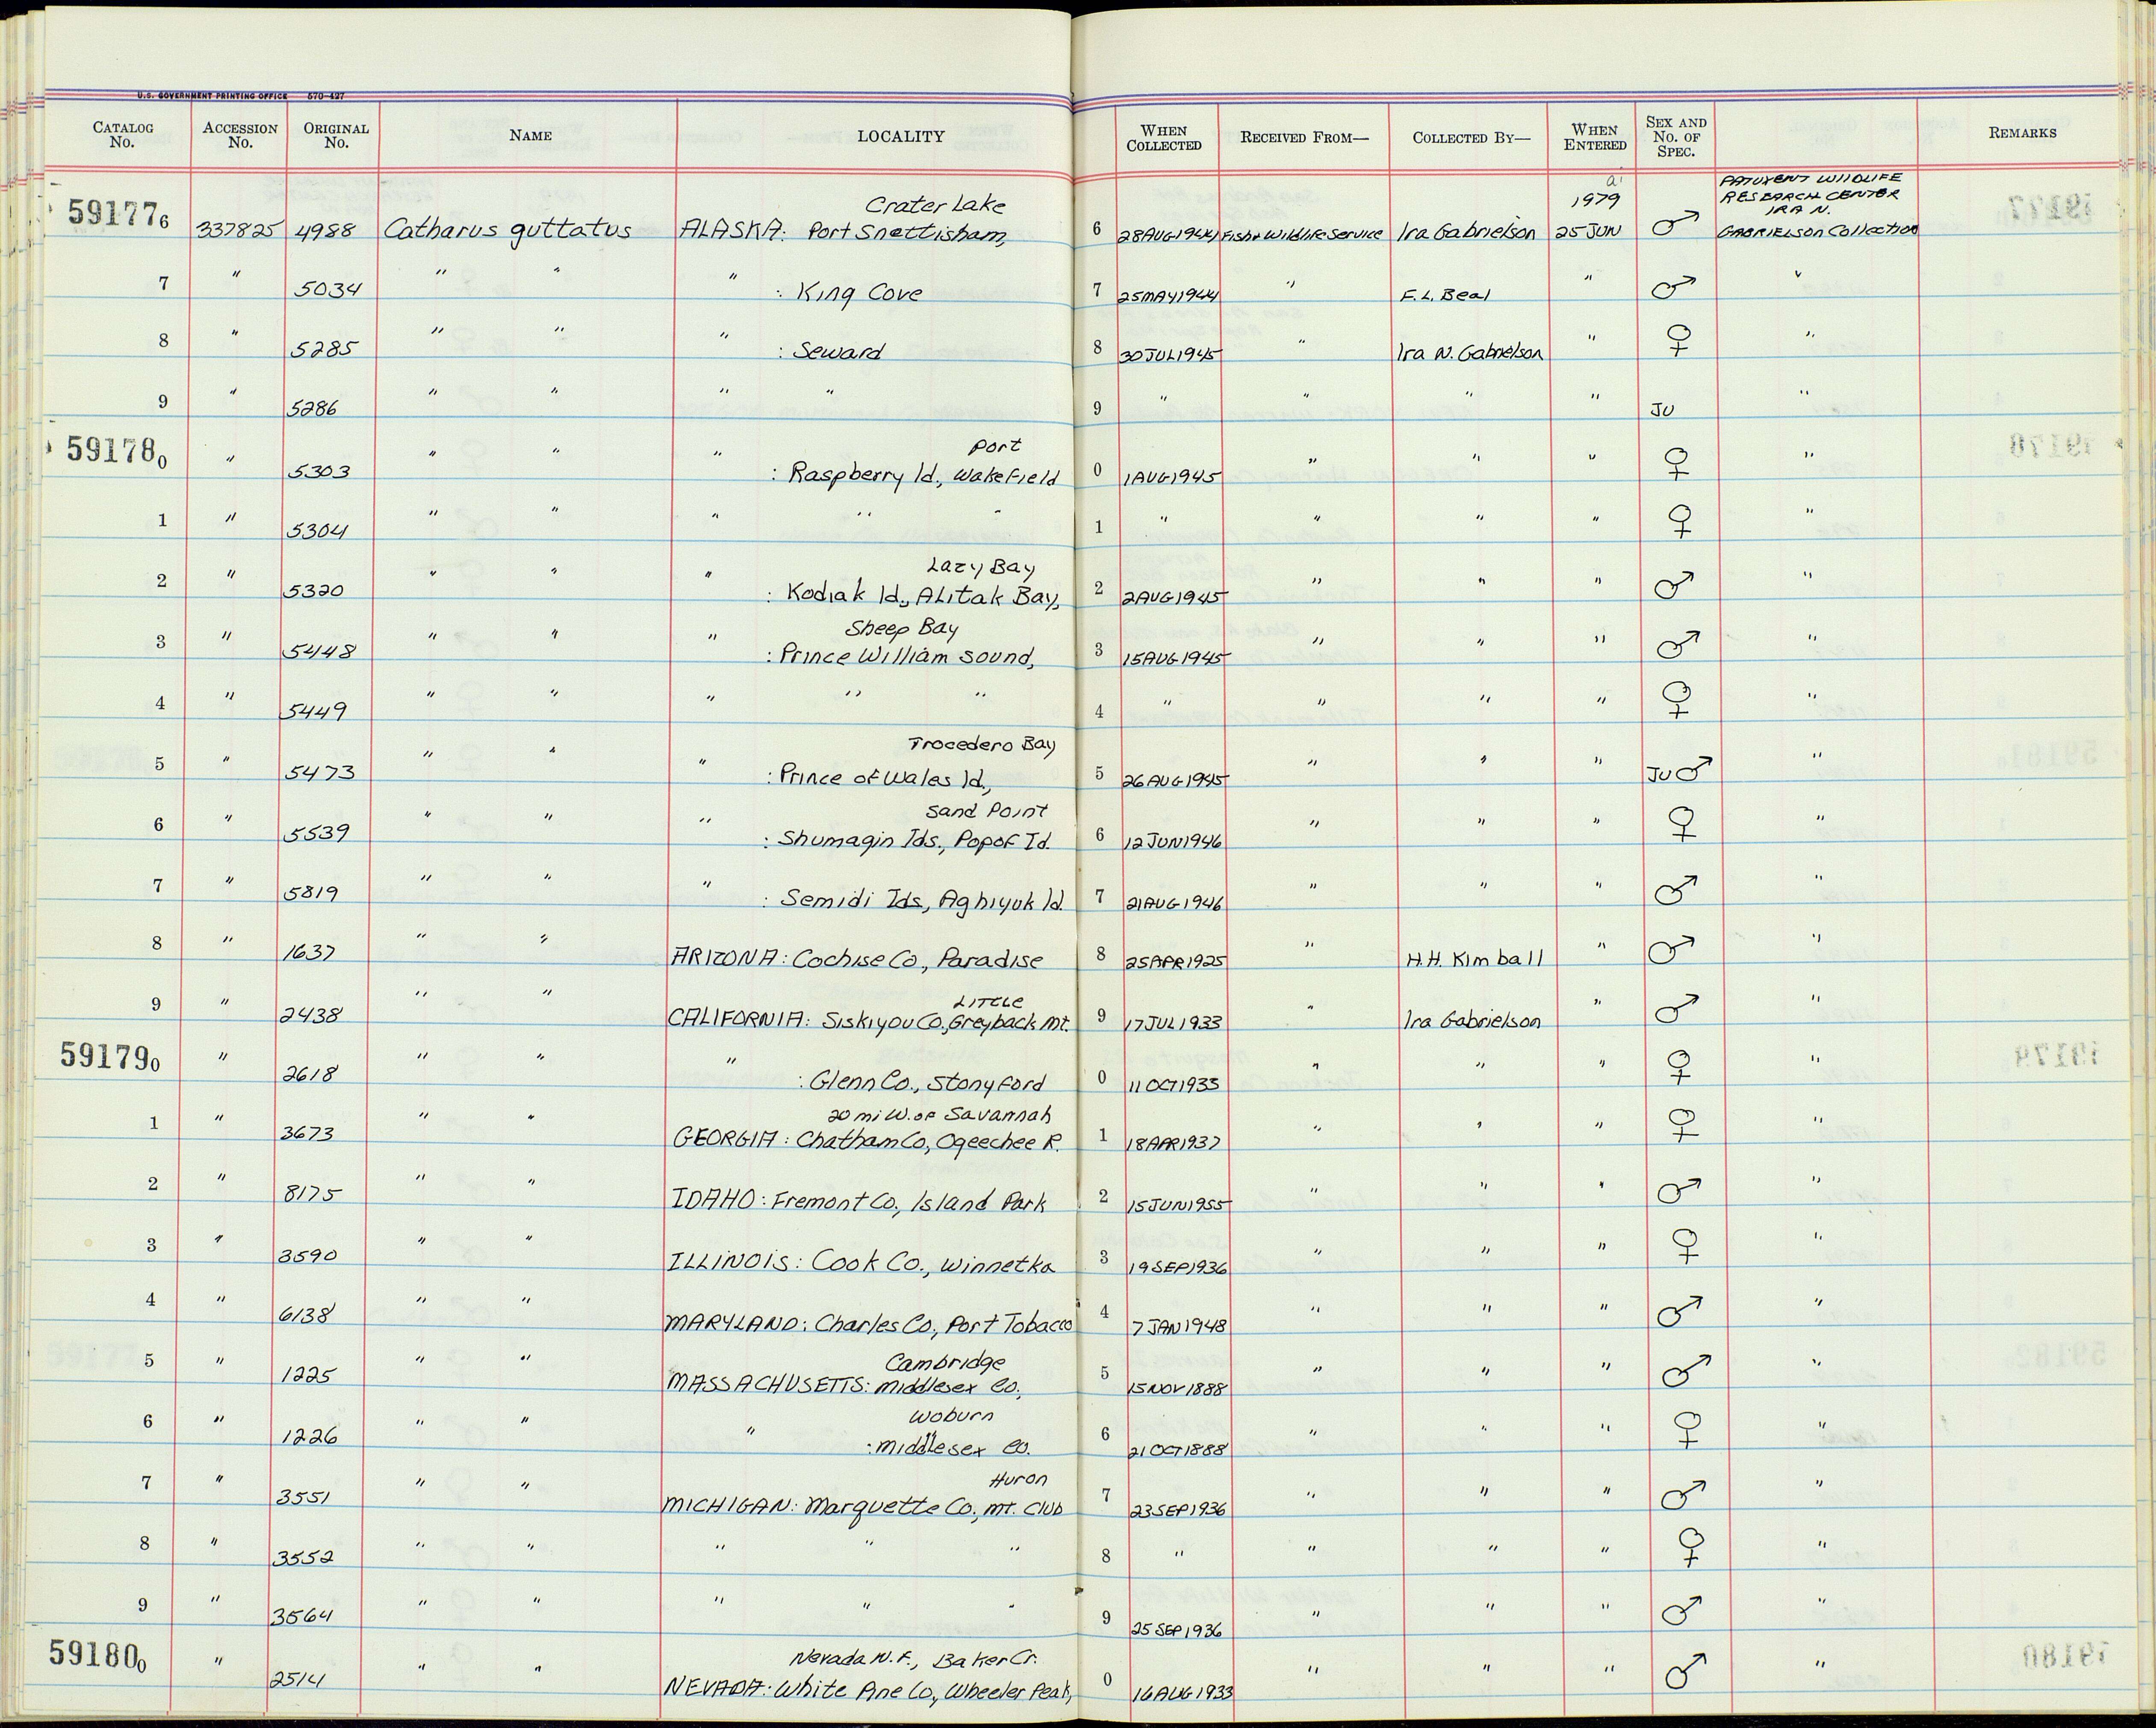 U.S. GOVERNMENT PRINTING OFFICE 570-427
CATALOG No. ACCESSION No. ORIGINAL No. NAME LOCALITY WHEN COLLECTED RECEIVED FROM— COLLECTED BY— WHEN ENTERED SEX AND No. OF SPEC. REMARKS
Crater Lake 1979 PATUXENT WILDLIFE RESEARCH CENTER IRA N.
591776 337825 4988 Catharus guttatus ALASKA: Port Snettisham, 6 28AUG1944 Fish & Wildlife Service Ira Gabrielson 25 JUN ♂ GABRIELSON Collection
7 " 5034 " " " : King Cove 7 25MAY1944 " F.L. Beal " ♂ "
8 " 5285 " " " : Seward 8 30JUL1945 " Ira N. Gabrielson " ♀ "
9 " 5286 " " " " 9 " " " " JU "
Port
591780 " 5303 " " " : Raspberry Id., Wakefield 0 1AUG1945 " " " ♀ "
1 " 5304 " " " " " 1 " " " " ♀ "
Lazy Bay
2 " 5320 " " " : Kodiak Id., Alitak Bay, 2 2AUG1945 " " " ♂ "
Sheep Bay
3 " 5448 " " " : Prince William Sound, 3 15AUG1945 " " " ♂ "
4 " 5449 " " " " " 4 " " " " ♀ "
Trocedero Bay
5 " 5473 " " " : Prince of Wales Id., 5 26AUG1945 " " " JU ♂ "
Sand Point
6 " 5539 " " " : Shumagin Ids., Popof Id. 6 12JUN1946 " " " ♀ "
7 " 5819 " " " : Semidi Ids, Aghiyuk Id. 7 21AUG1946 " " " ♂ "
8 " 1637 " " ARIZONA: Cochise Co., Paradise 8 25APR1925 " H.H. Kimball " ♂ "
Little
9 " 2438 " " CALIFORNIA: Siskiyou Co., Greyback Mt. 9 17JUL1933 " Ira Gabrielson " ♂ "
591790 " 2618 " " " : Glenn Co., Stonyford 0 11OCT1933 " " " ♀ "
20 mi W. of Savannah
1 " 3673 " " GEORGIA: Chatham Co., Ogeechee R. 1 18APR1937 " " " ♀ "
2 " 8175 " " IDAHO: Fremont Co., Island Park 2 15JUN1955 " " " ♂ "
3 " 3590 " " ILLINOIS: Cook Co., Winnetka 3 19SEP1936 " " " ♀ "
4 " 6138 " " MARYLAND: Charles Co., Port Tobacco 4 7JAN1948 " " " ♂ "
Cambridge
5 " 1225 " " MASSACHUSETTS: Middlesex Co., 5 15NOV1888 " " " ♂ "
Woburn
6 " 1226 " " " : Middlesex Co. 6 21OCT1888 " " " ♀ "
Huron
7 " 3551 " " MICHIGAN: Marquette Co., Mt. Club 7 23SEP1936 " " " ♂ "
8 " 3552 " " " " " 8 " " " " ♀ "
9 " 3564 " " " " " 9 25SEP1936 " " " ♂ "
Nevada N.F., Baker Cr.
591800 " 2514 " " NEVADA: White Pine Co., Wheeler Peak, 0 16AUG1933 " " " ♂ "